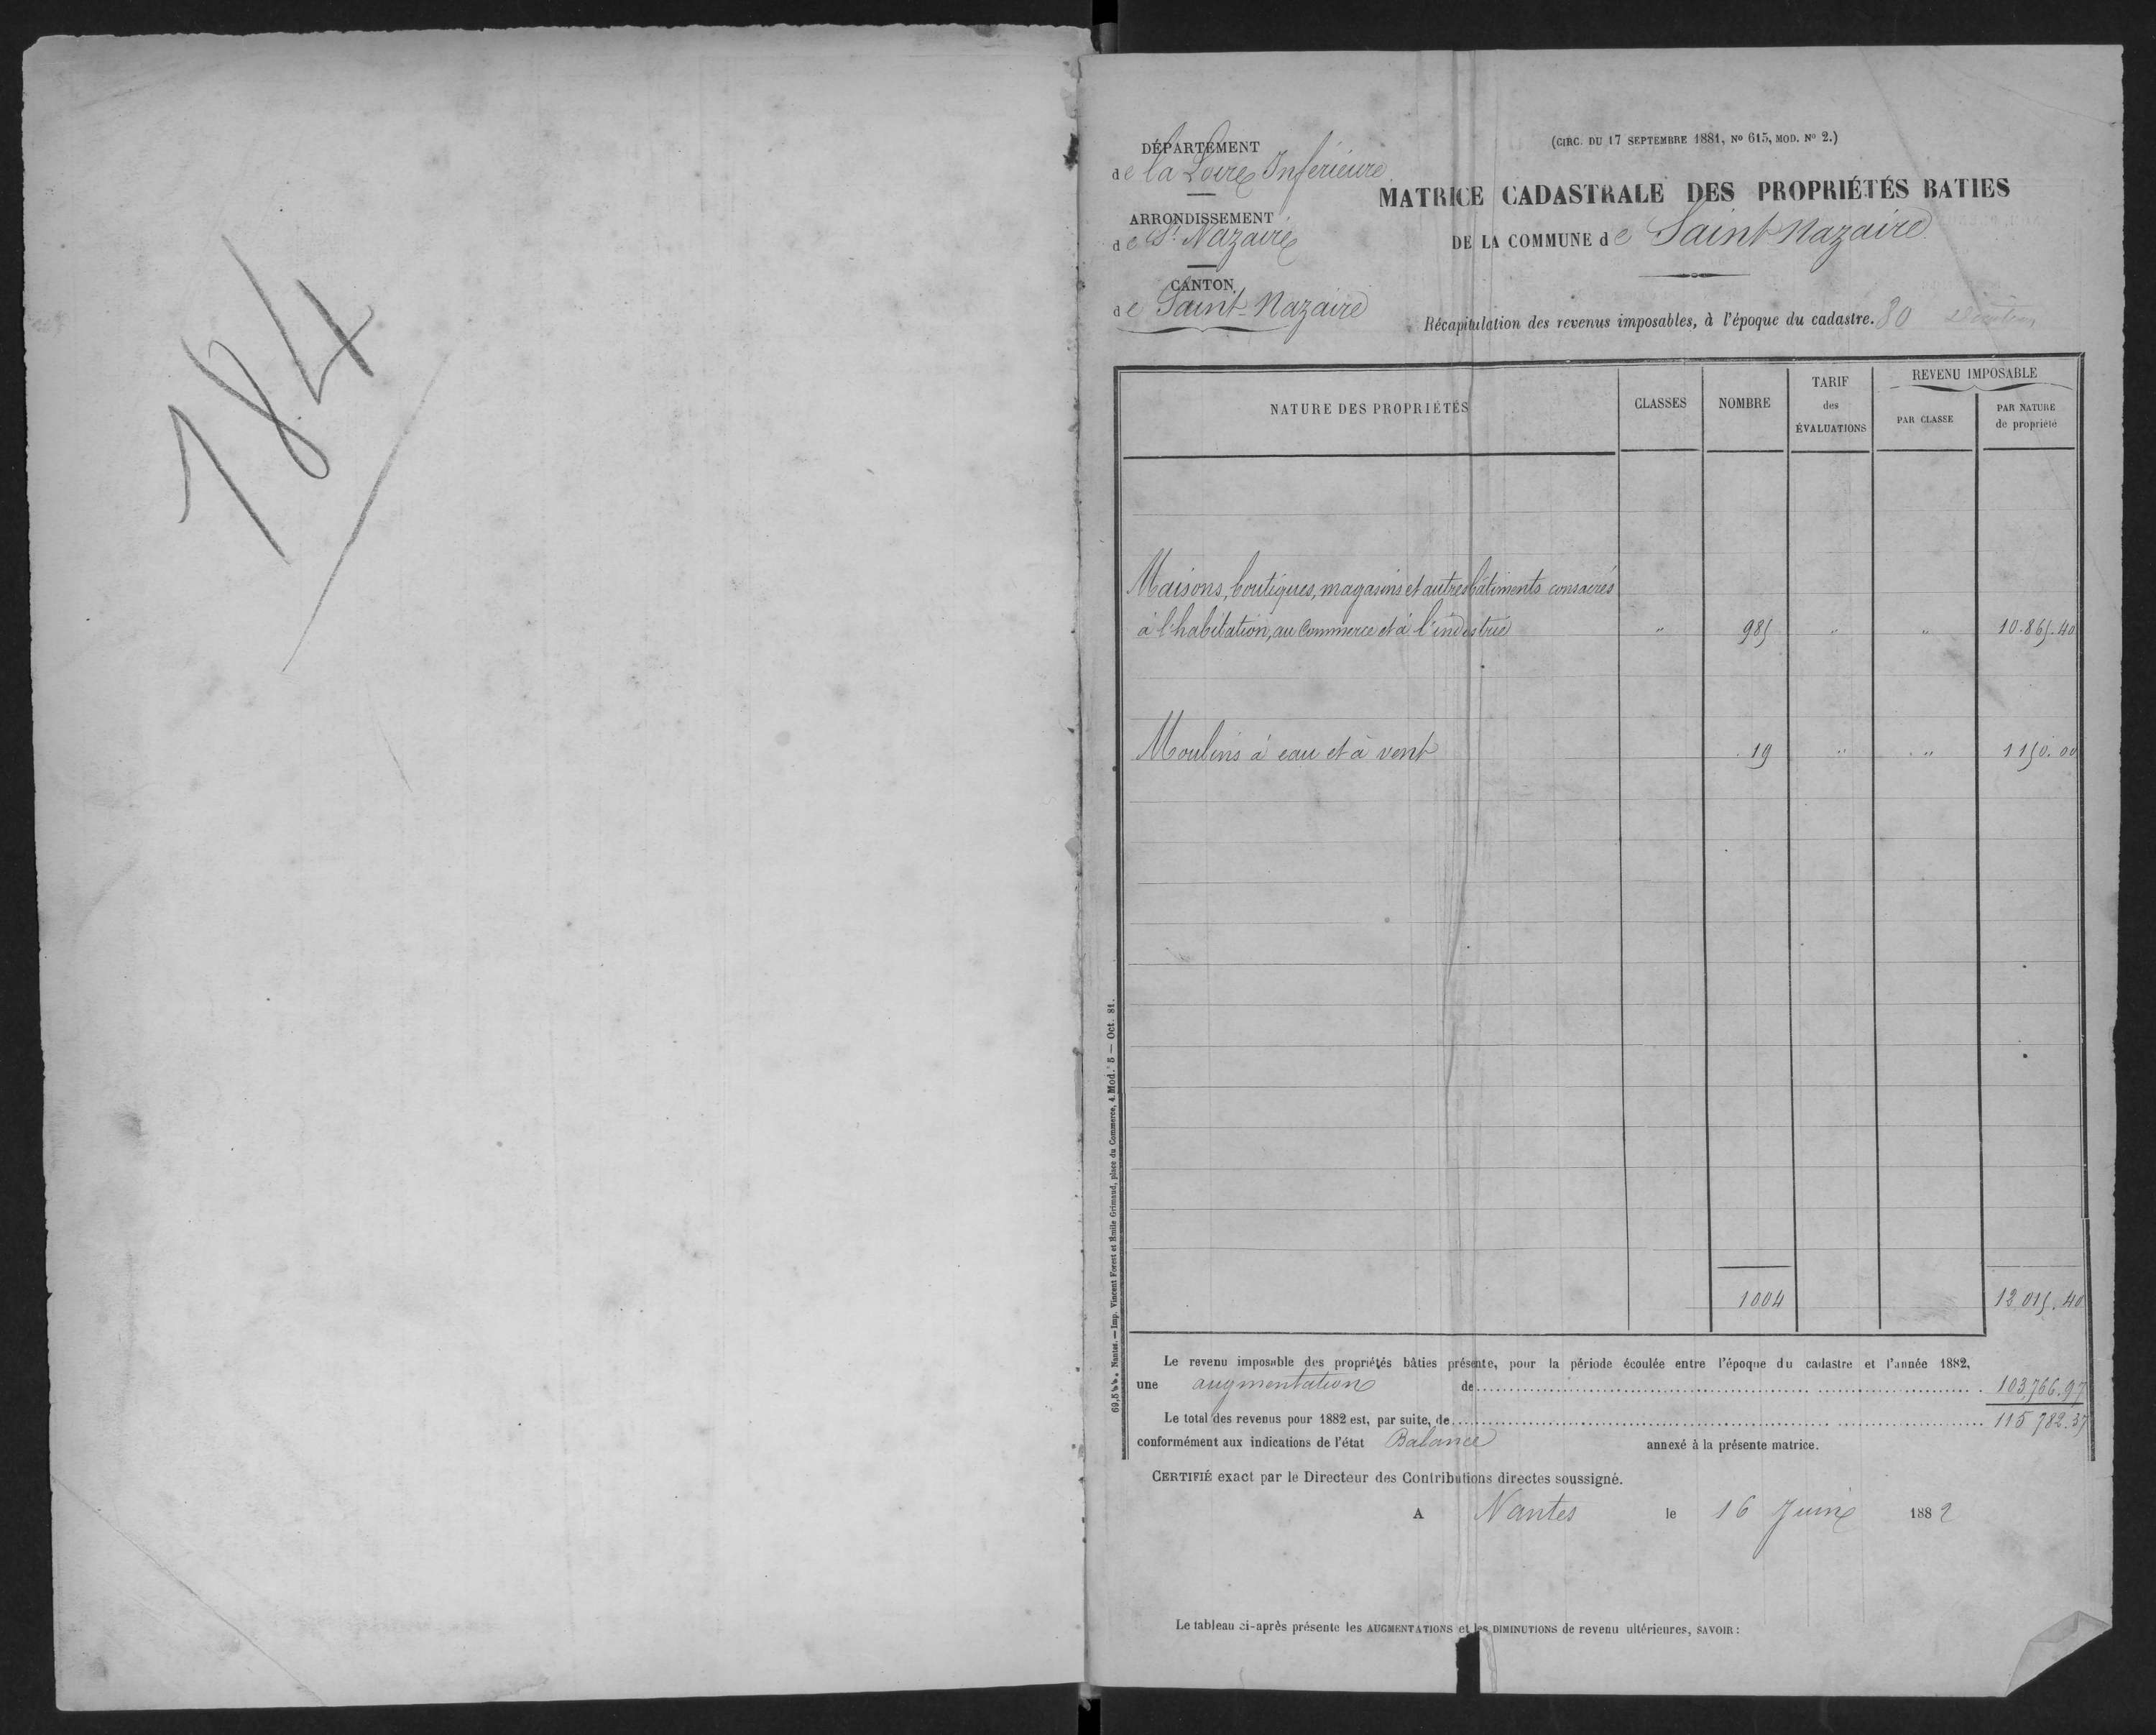 184
DÉPARTEMENT
de la Loire Inférieure
ARRONDISSEMENT
de St Nazaire
CANTON
de Saint-Nazaire
(CIRC. DU 17 SEPTEMBRE 1881, No 615, MOD. No 2.)
MATRICE CADASTRALE DES PROPRIÉTÉS BATIES
DE LA COMMUNE de Saint Nazaire
Récapitulation des revenus imposables, à l'époque du cadastre. 80
NATURE DES PROPRIÉTÉS
CLASSES
NOMBRE
TARIF
des
ÉVALUATIONS
REVENU IMPOSABLE
PAR CLASSE
PAR NATURE
de propriété
Maisons, boutiques, magasins et autres bâtiments consacrés
à l'habitation, au Commerce et à l'industrie " 985 " " 10.865.40
Moulins à eau et à vent 19 " " 1150.00
1004 12.015.40
Le revenu imposable des propriétés bâties présente, pour la période écoulée entre l'époque du cadastre et l'année 1882,
une augmentation de 103,766.97
Le total des revenus pour 1882 est, par suite, de 115 782.37
conformément aux indications de l'état Balance annexé à la présente matrice.
CERTIFIÉ exact par le Directeur des Contributions directes soussigné.
A Nantes le 16 Juin 1882
Le tableau ci-après présente les AUGMENTATIONS et les DIMINUTIONS de revenu ultérieures, SAVOIR :
Nantes. — Imp. Vincent Forest et Emile Grimaud, place du Commerce, 4. Mod. 5 — Oct. 81.